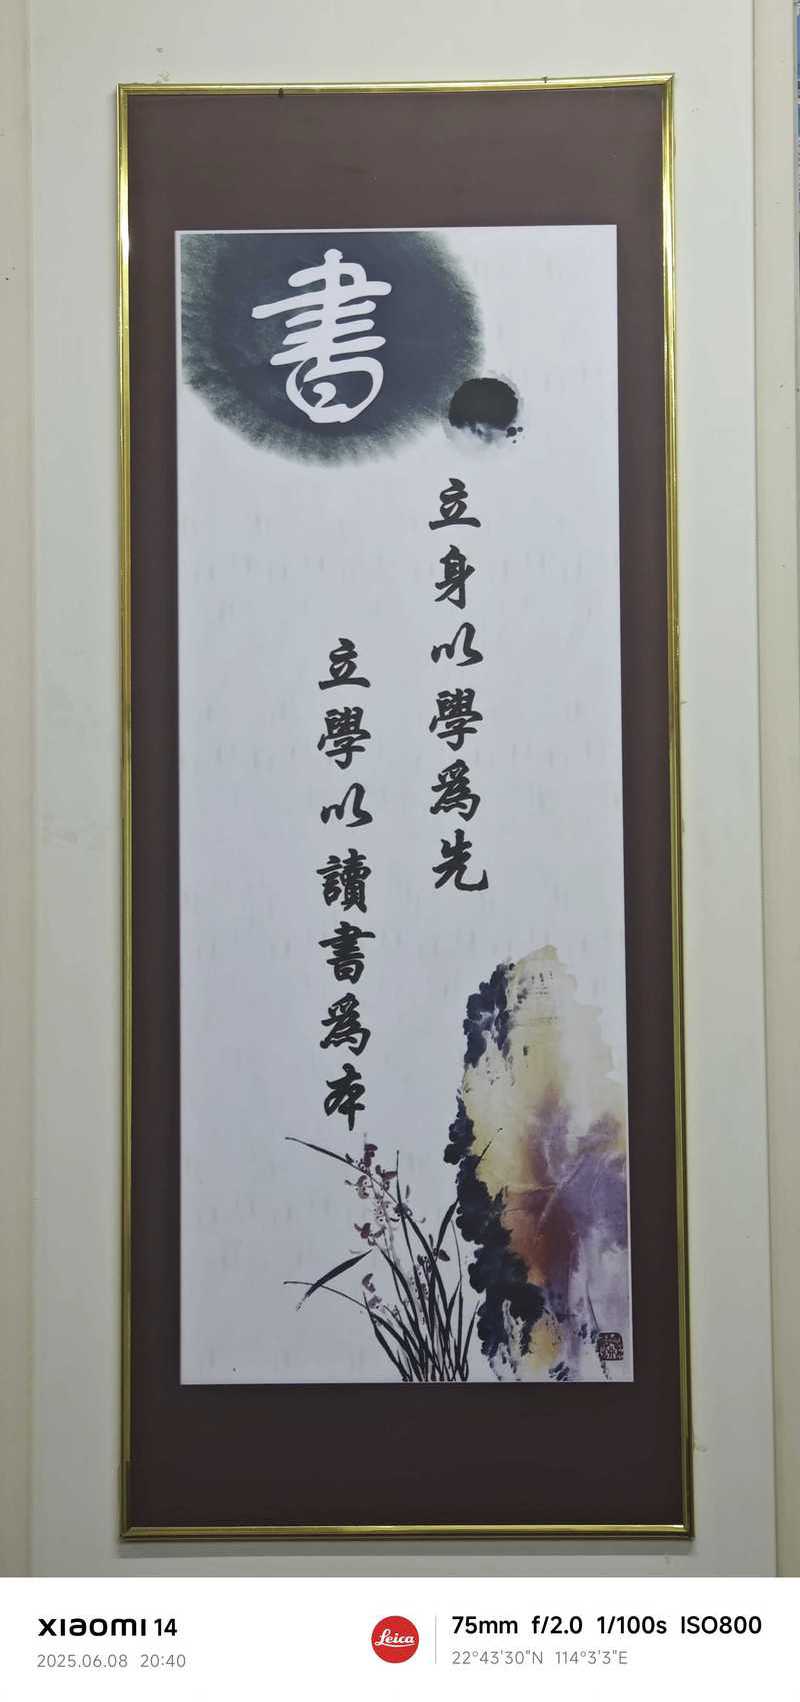 書
立身以學爲先
立學以讀書爲本
XIAOMI 14
2025.06.08 20:40
Leica
75mm f/2.0 1/100s ISO800
22°43'30"N 114°3'3"E